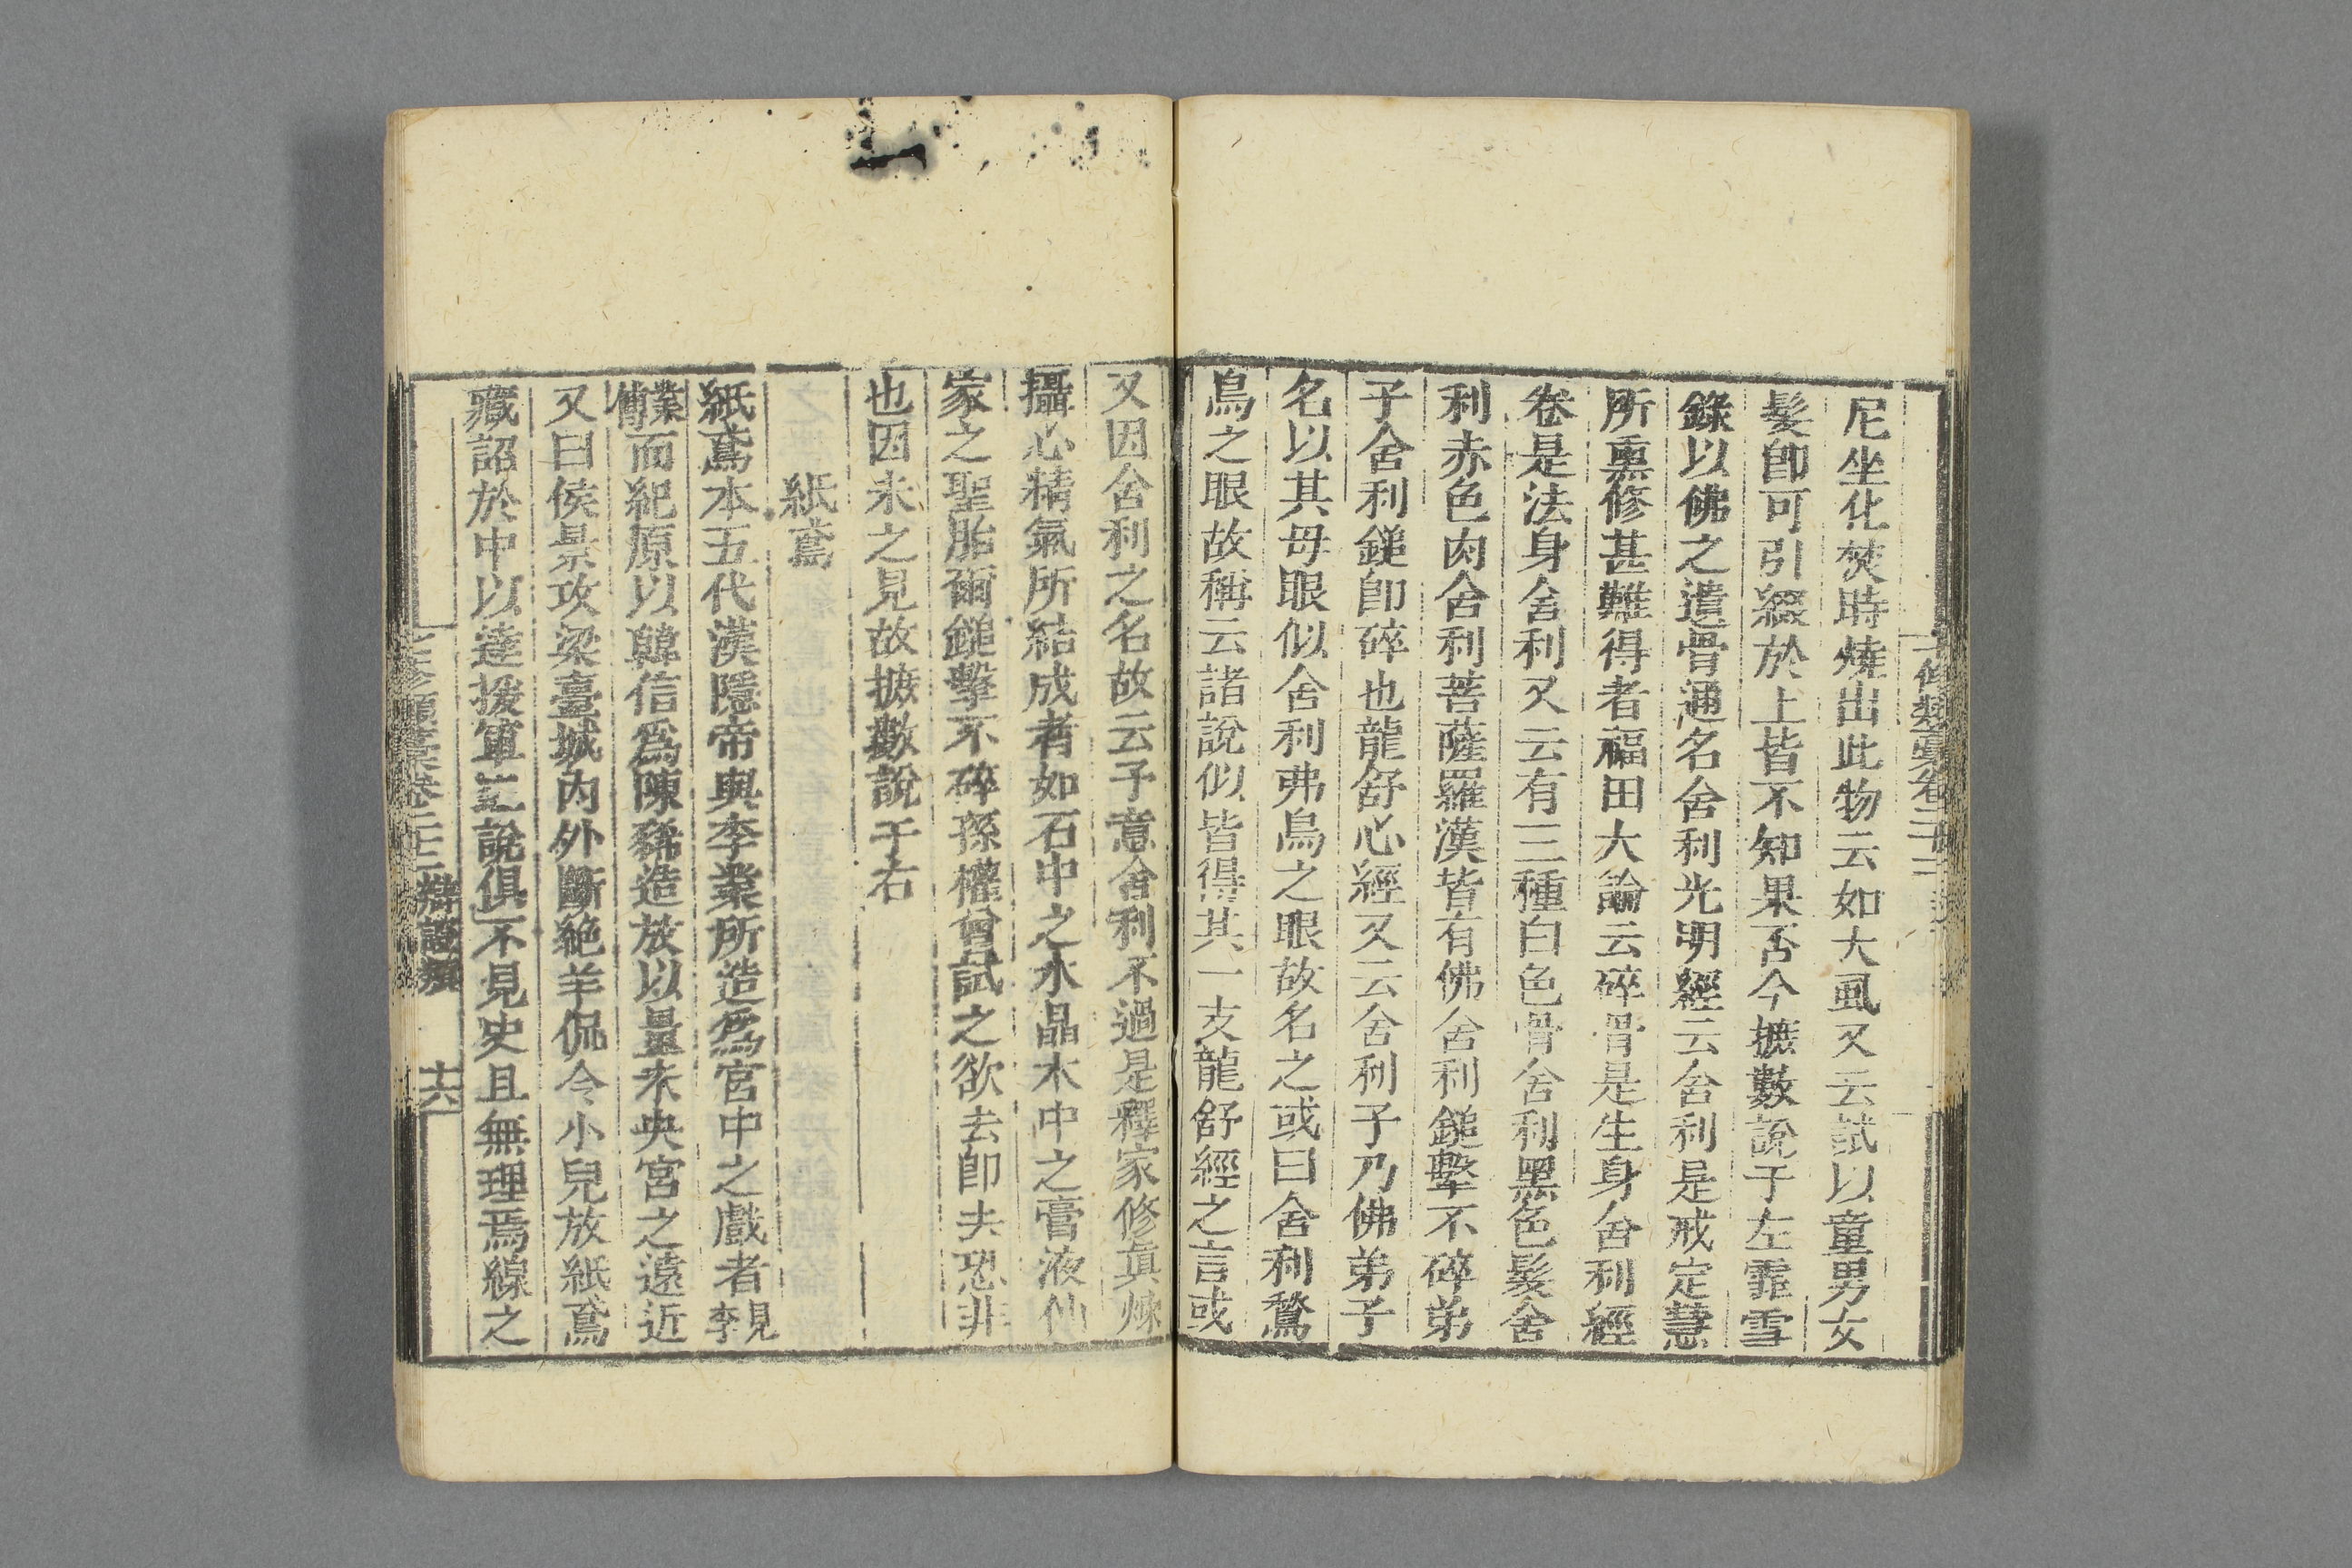 尼坐化焚時燒出此物云如大虱又云試以童男女
髮卽可引綴於上皆不知果否今摭數說于左霏雪
錄以佛之遺骨通名舍利光明經云舍利是戒定慧
所熏修甚難得者福田大論云碎骨是生身舍利經
卷是法身舍利又云有三種白色骨舍利黑色髮舍
利赤色肉舍利菩薩羅漢皆有佛舍利鎚擊不碎弟
子舍利鎚卽碎也龍舒心經又云舍利子乃佛弟子
名以其母眼似舍利弗鳥之眼故名之或曰舍利鶖
鳥之眼故稱云諸說似皆得其一支龍舒經之言或
又因舍利之名故云予意舍利不過是釋家修眞煉
攝心精氣所結成者如石中之水晶木中之膏液仙
家之聖胎爾鎚擊不碎孫權曾試之欲去卽去恐非
也因未之見故摭數說于右
紙鳶
紙鳶本五代漢隱帝與李業所造爲宮中之戲者見李
業傳而紀原以韓信爲陳豨造放以量未央宮之遠近
又曰侯景攻梁臺城內外斷絶羊侃令小兒放紙鳶
藏詔於中以達援軍二說俱不見史且無理焉線之
七修類藁卷二十二 辯證類 十六